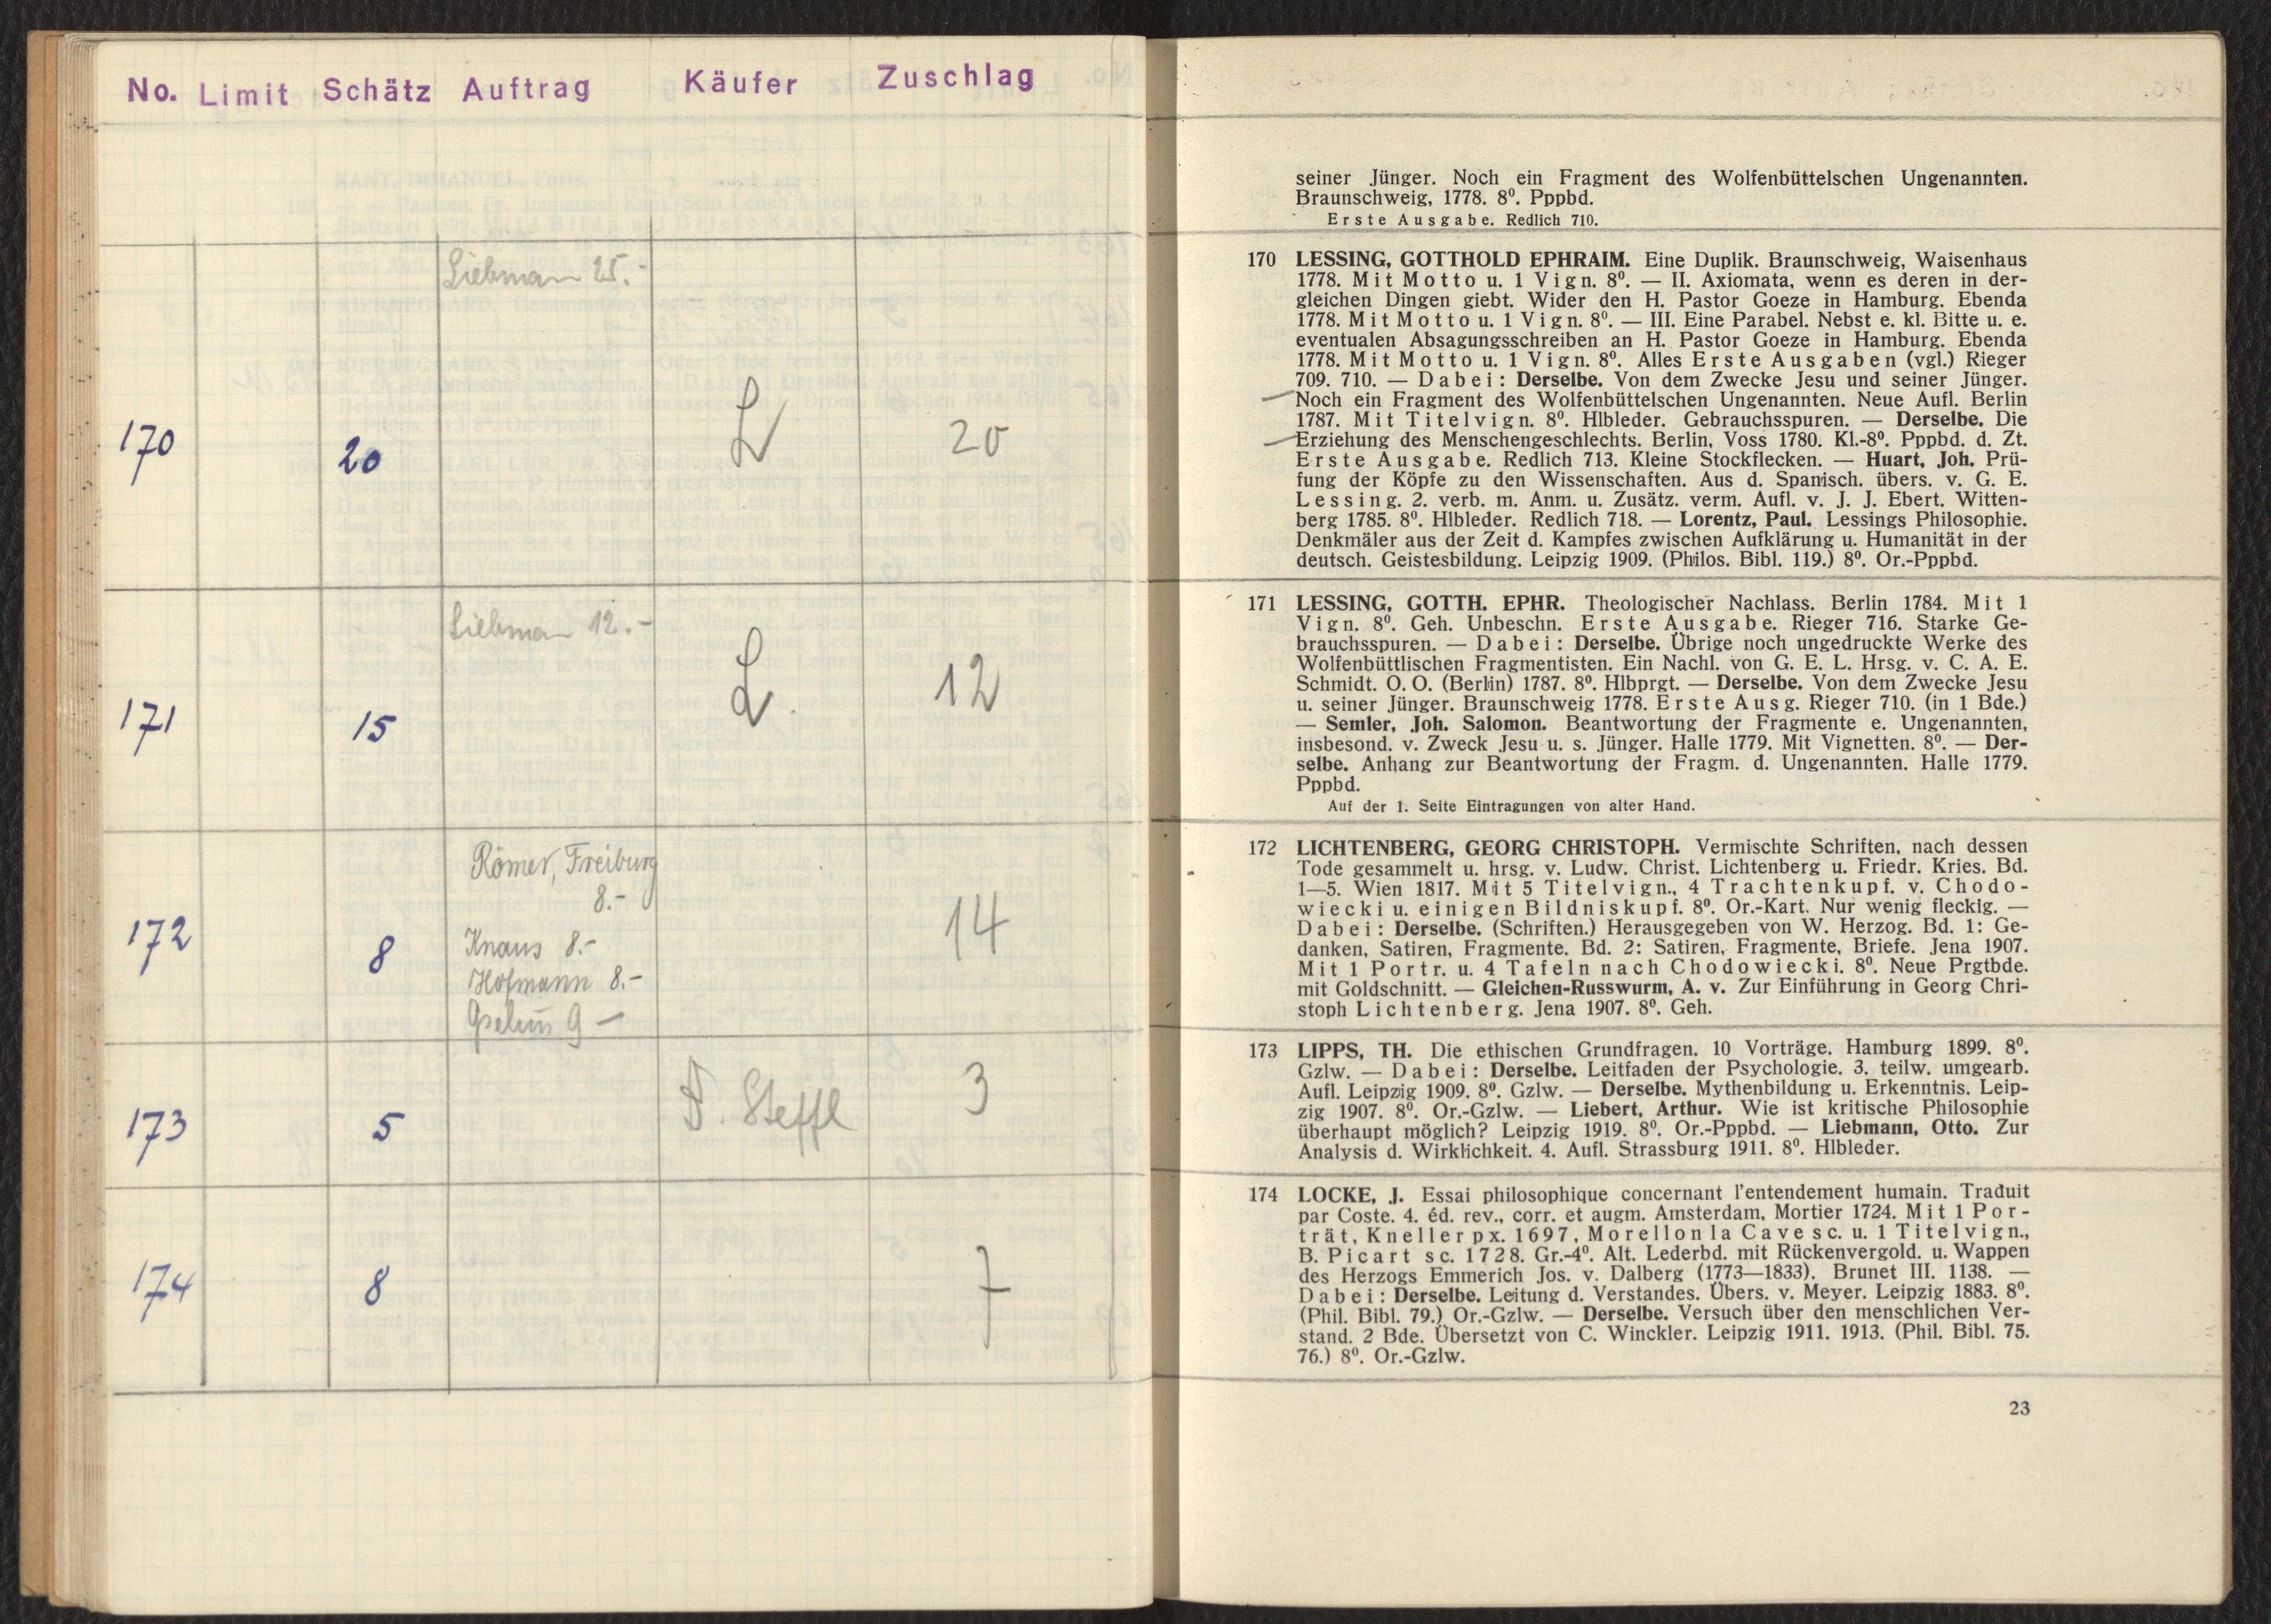 No. Limit Schätz Auftrag Käufer Zuschlag
Liebman 25.-
170 20 L 20
Liebman 12.-
171 15 L. 12
Römer, Freiburg
8.-
172 8 14
Knaus 8.-
Hofmann 8.-
9 —
173 5 Steffl 3
174 8 7
seiner Jünger. Noch ein Fragment des Wolfenbüttelschen Ungenannten.
Braunschweig, 1778. 8⁰. Pppbd.
Erste Ausgabe. Redlich 710.
170 LESSING, GOTTHOLD EPHRAIM. Eine Duplik. Braunschweig, Waisenhaus
1778. Mit Motto u. 1 Vign. 8⁰. — II. Axiomata, wenn es deren in der-
gleichen Dingen giebt. Wider den H. Pastor Goeze in Hamburg. Ebenda
1778. Mit Motto u. 1 Vign. 8⁰. — III. Eine Parabel. Nebst e. kl. Bitte u. e.
eventualen Absagungsschreiben an H. Pastor Goeze in Hamburg. Ebenda
1778. Mit Motto u. 1 Vign. 8⁰. Alles Erste Ausgaben (vgl.) Rieger
709. 710. — Dabei: Derselbe. Von dem Zwecke Jesu und seiner Jünger.
Noch ein Fragment des Wolfenbüttelschen Ungenannten. Neue Aufl. Berlin
1787. Mit Titelvign. 8⁰. Hlbleder. Gebrauchsspuren. — Derselbe. Die
Erziehung des Menschengeschlechts. Berlin, Voss 1780. Kl.-8⁰. Pppbd. d. Zt.
Erste Ausgabe. Redlich 713. Kleine Stockflecken. — Huart, Joh. Prü-
fung der Köpfe zu den Wissenschaften. Aus d. Spanisch. übers. v. G. E.
Lessing. 2. verb. m. Anm. u. Zusätz. verm. Aufl. v. J. J. Ebert. Witten-
berg 1785. 8⁰. Hlbleder. Redlich 718. — Lorentz, Paul. Lessings Philosophie.
Denkmäler aus der Zeit d. Kampfes zwischen Aufklärung u. Humanität in der
deutsch. Geistesbildung. Leipzig 1909. (Philos. Bibl. 119.) 8⁰. Or.-Pppbd.
171 LESSING, GOTTH. EPHR. Theologischer Nachlass. Berlin 1784. Mit 1
Vign. 8⁰. Geh. Unbeschn. Erste Ausgabe. Rieger 716. Starke Ge-
brauchsspuren. — Dabei: Derselbe. Übrige noch ungedruckte Werke des
Wolfenbüttlischen Fragmentisten. Ein Nachl. von G. E. L. Hrsg. v. C. A. E.
Schmidt. O. O. (Berlin) 1787. 8⁰. Hlbprgt. — Derselbe. Von dem Zwecke Jesu
u. seiner Jünger. Braunschweig 1778. Erste Ausg. Rieger 710. (in 1 Bde.)
— Semler, Joh. Salomon. Beantwortung der Fragmente e. Ungenannten,
insbesond. v. Zweck Jesu u. s. Jünger. Halle 1779. Mit Vignetten. 8⁰. — Der-
selbe. Anhang zur Beantwortung der Fragm. d. Ungenannten. Halle 1779.
Pppbd.
Auf der 1. Seite Eintragungen von alter Hand.
172 LICHTENBERG, GEORG CHRISTOPH. Vermischte Schriften, nach dessen
Tode gesammelt u. hrsg. v. Ludw. Christ. Lichtenberg u. Friedr. Kries. Bd.
1—5. Wien 1817. Mit 5 Titelvign., 4 Trachtenkupf. v. Chodo-
wiecki u. einigen Bildniskupf. 8⁰. Or.-Kart. Nur wenig fleckig. —
Dabei: Derselbe. (Schriften.) Herausgegeben von W. Herzog. Bd. 1: Ge-
danken, Satiren, Fragmente. Bd. 2: Satiren, Fragmente, Briefe. Jena 1907.
Mit 1 Portr. u. 4 Tafeln nach Chodowiecki. 8⁰. Neue Prgtbde.
mit Goldschnitt. — Gleichen-Russwurm, A. v. Zur Einführung in Georg Chri-
stoph Lichtenberg. Jena 1907. 8⁰. Geh.
173 LIPPS, TH. Die ethischen Grundfragen. 10 Vorträge. Hamburg 1899. 8⁰.
Gzlw. — Dabei: Derselbe. Leitfaden der Psychologie. 3. teilw. umgearb.
Aufl. Leipzig 1909. 8⁰. Gzlw. — Derselbe. Mythenbildung u. Erkenntnis. Leip-
zig 1907. 8⁰. Or.-Gzlw. — Liebert, Arthur. Wie ist kritische Philosophie
überhaupt möglich? Leipzig 1919. 8⁰. Or.-Pppbd. — Liebmann, Otto. Zur
Analysis d. Wirklichkeit. 4. Aufl. Strassburg 1911. 8⁰. Hlbleder.
174 LOCKE, J. Essai philosophique concernant l'entendement humain. Traduit
par Coste. 4. éd. rev., corr. et augm. Amsterdam, Mortier 1724. Mit 1 Por-
trät, Kneller px. 1697, Morellon la Cave sc. u. 1 Titelvign.,
B. Picart sc. 1728. Gr.-4⁰. Alt. Lederbd. mit Rückenvergold. u. Wappen
des Herzogs Emmerich Jos. v. Dalberg (1773—1833). Brunet III. 1138. —
Dabei: Derselbe. Leitung d. Verstandes. Übers. v. Meyer. Leipzig 1883. 8⁰.
(Phil. Bibl. 79.) Or.-Gzlw. — Derselbe. Versuch über den menschlichen Ver-
stand. 2 Bde. Übersetzt von C. Winckler. Leipzig 1911. 1913. (Phil. Bibl. 75.
76.) 8⁰. Or.-Gzlw.
23